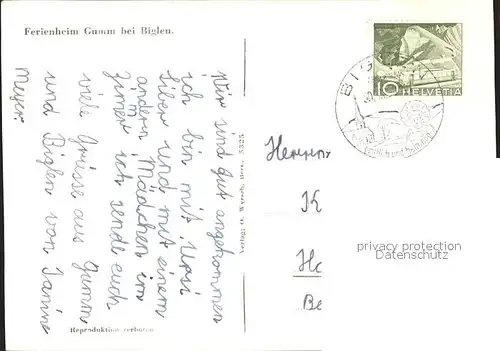 Ferienheim Gumm bei Biglen.
Wir sind gut angekommen
ich bin mit Ursi
Siber und mit einem
andern Mädchen im
Zimer ich sende euch
viele Grüsse aus Gumm
und Biglen von Janine
Meyer
Verlag: O. Wyrsch, Bern. 5325
Reproduktion verboten
BIGLEN
10 HELVETIA
Herrn
K
He
Be
privacy protection
Datenschutz